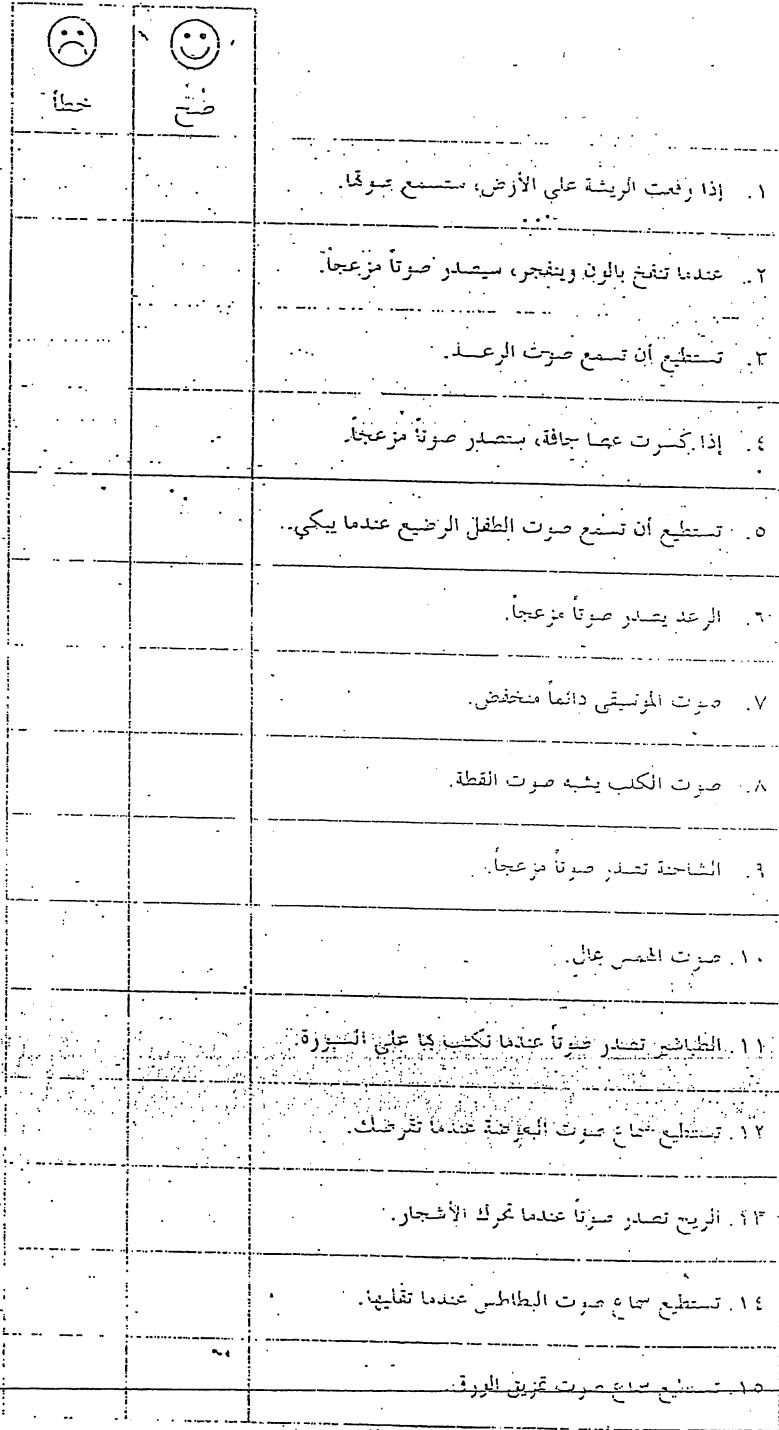 صح خطأ
١. إذا وقعت الريشة على الأرض، ستسمع صوتها.
٢. عندما تنفخ بالون وينفجر، سيصدر صوتاً مزعجاً.
٣. تستطيع أن تسمع صوت الرعد.
٤. إذا كسرت عصا جافة، ستصدر صوتاً مزعجاً.
٥. تستطيع أن تسمع صوت الطفل الرضيع عندما يبكي..
٦. الرعد يصدر صوتاً مزعجاً.
٧. صوت الموسيقى دائماً منخفض.
٨. صوت الكلب يشبه صوت القطة.
٩. الشاحنة تصدر صوتاً مزعجاً.
١٠. صوت الهمس عال.
١١. الطباشير تصدر صوتاً عندما تكتب بها على السبورة.
١٢. تستطيع سماع صوت البعوضة عندما تقرصك.
١٣. الريح تصدر صوتاً عندما تحرك الأشجار.
١٤. تستطيع سماع صوت البطاطس عندما تقليها.
١٥. تستطيع سماع صوت تمزيق الورق.